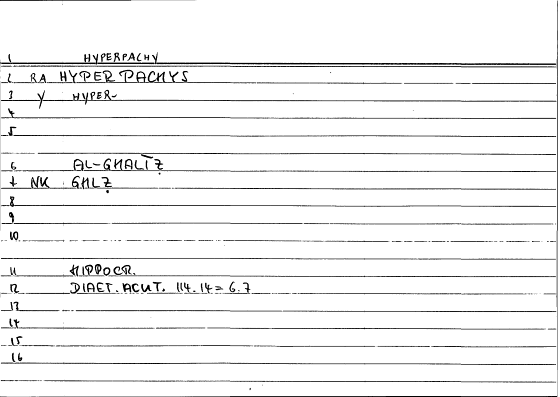 1 HYPERPACHY
2 RA HYPER PACHYS
3 Y HYPER-
4
5
6 AL-GHALĪẒ
7 NK GHLẒ
8
9
10
11 HIPPOCR.
12 DIAET. ACUT. 114.14 = 6.7
13
14
15
16